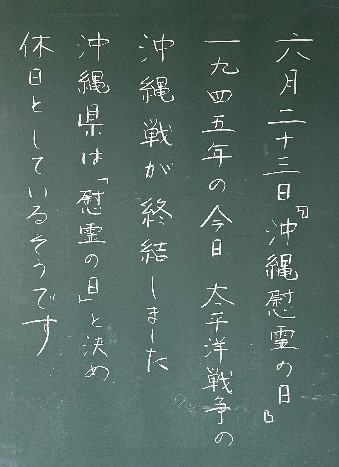 六月二十三日『沖縄慰霊の日』
一九四五年の今日 太平洋戦争の
沖縄戦が終結しました
沖縄県は「慰霊の日」と決め
休日としているそうです